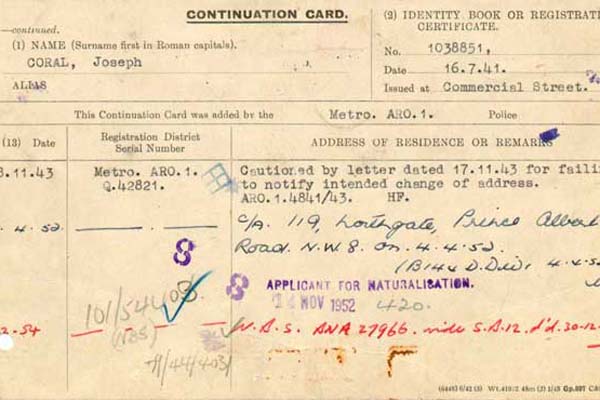 CONTINUATION CARD.
—continued.
(1) NAME (Surname first in Roman capitals).
CORAL, Joseph
ALIAS
(2) IDENTITY BOOK OR REGISTRAT
CERTIFICATE.
No. 1038851,
Date 16.7.41.
Issued at Commercial Street.
This Continuation Card was added by the Metro. ARO.1. Police
(13) Date
Registration District
Serial Number
ADDRESS OF RESIDENCE OR REMARKS
8.11.43 Metro. ARO.1. Cautioned by letter dated 17.11.43 for failin
Q.42821. to notify intended change of address.
ARO.1.4841/43. HF.
.4.52. C/A. 119, Northgate, Prince Albert
Road. N.W.8. on 4.4.52.
(B144 D.Div) 4.4.52
8
8 APPLICANT FOR NATURALISATION.
NOV 1952 420.
101/544031
(NBS)
2-54 N.A.S. ANA 27966. vide S.A.12. d'd. 30-12-
(6448) 6/42 (3) Wt.41912 48m (2) 1/43 Gp.697